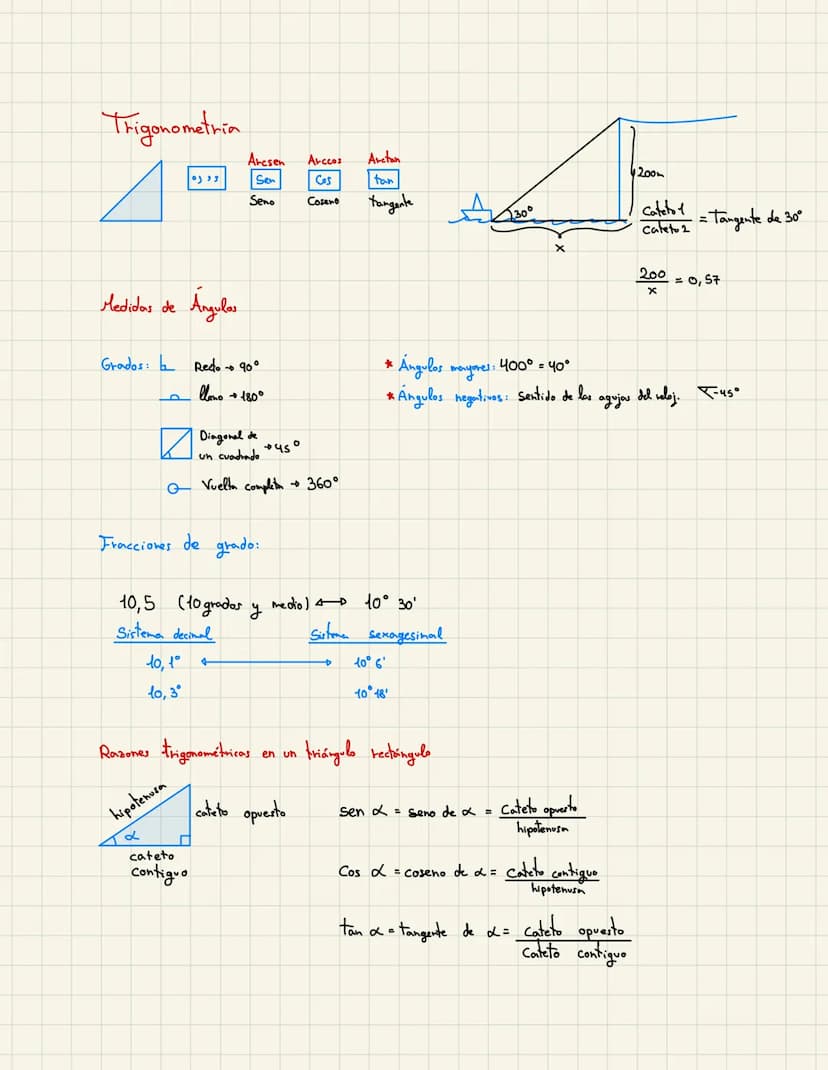 Trigonometría
Arcsen Arccos Arctan
° , ,, Sen Cos tan
Seno Coseno tangente
200m
30°
x
Cateto 1 / Cateto 2 = Tangente de 30°
200 / x = 0,57
Medidas de Ángulos
Grados: Recto → 90°
llano → 180°
Diagonal de
un cuadrado → 45°
Vuelta completa → 360°
* Ángulos mayores: 400° = 40°
* Ángulos negativos: Sentido de las agujas del reloj. -45°
Fracciones de grado:
10,5 (10 grados y medio) ↔ 10° 30'
Sistema decimal Sistema sexagesimal
10,1° ↔ 10° 6'
10,3° 10° 18'
Razones trigonométricas en un triángulo rectángulo
hipotenusa
cateto opuesto
α
cateto
contiguo
sen α = seno de α = Cateto opuesto / hipotenusa
Cos α = coseno de α = Cateto contiguo / hipotenusa
tan α = tangente de α = Cateto opuesto / Cateto contiguo